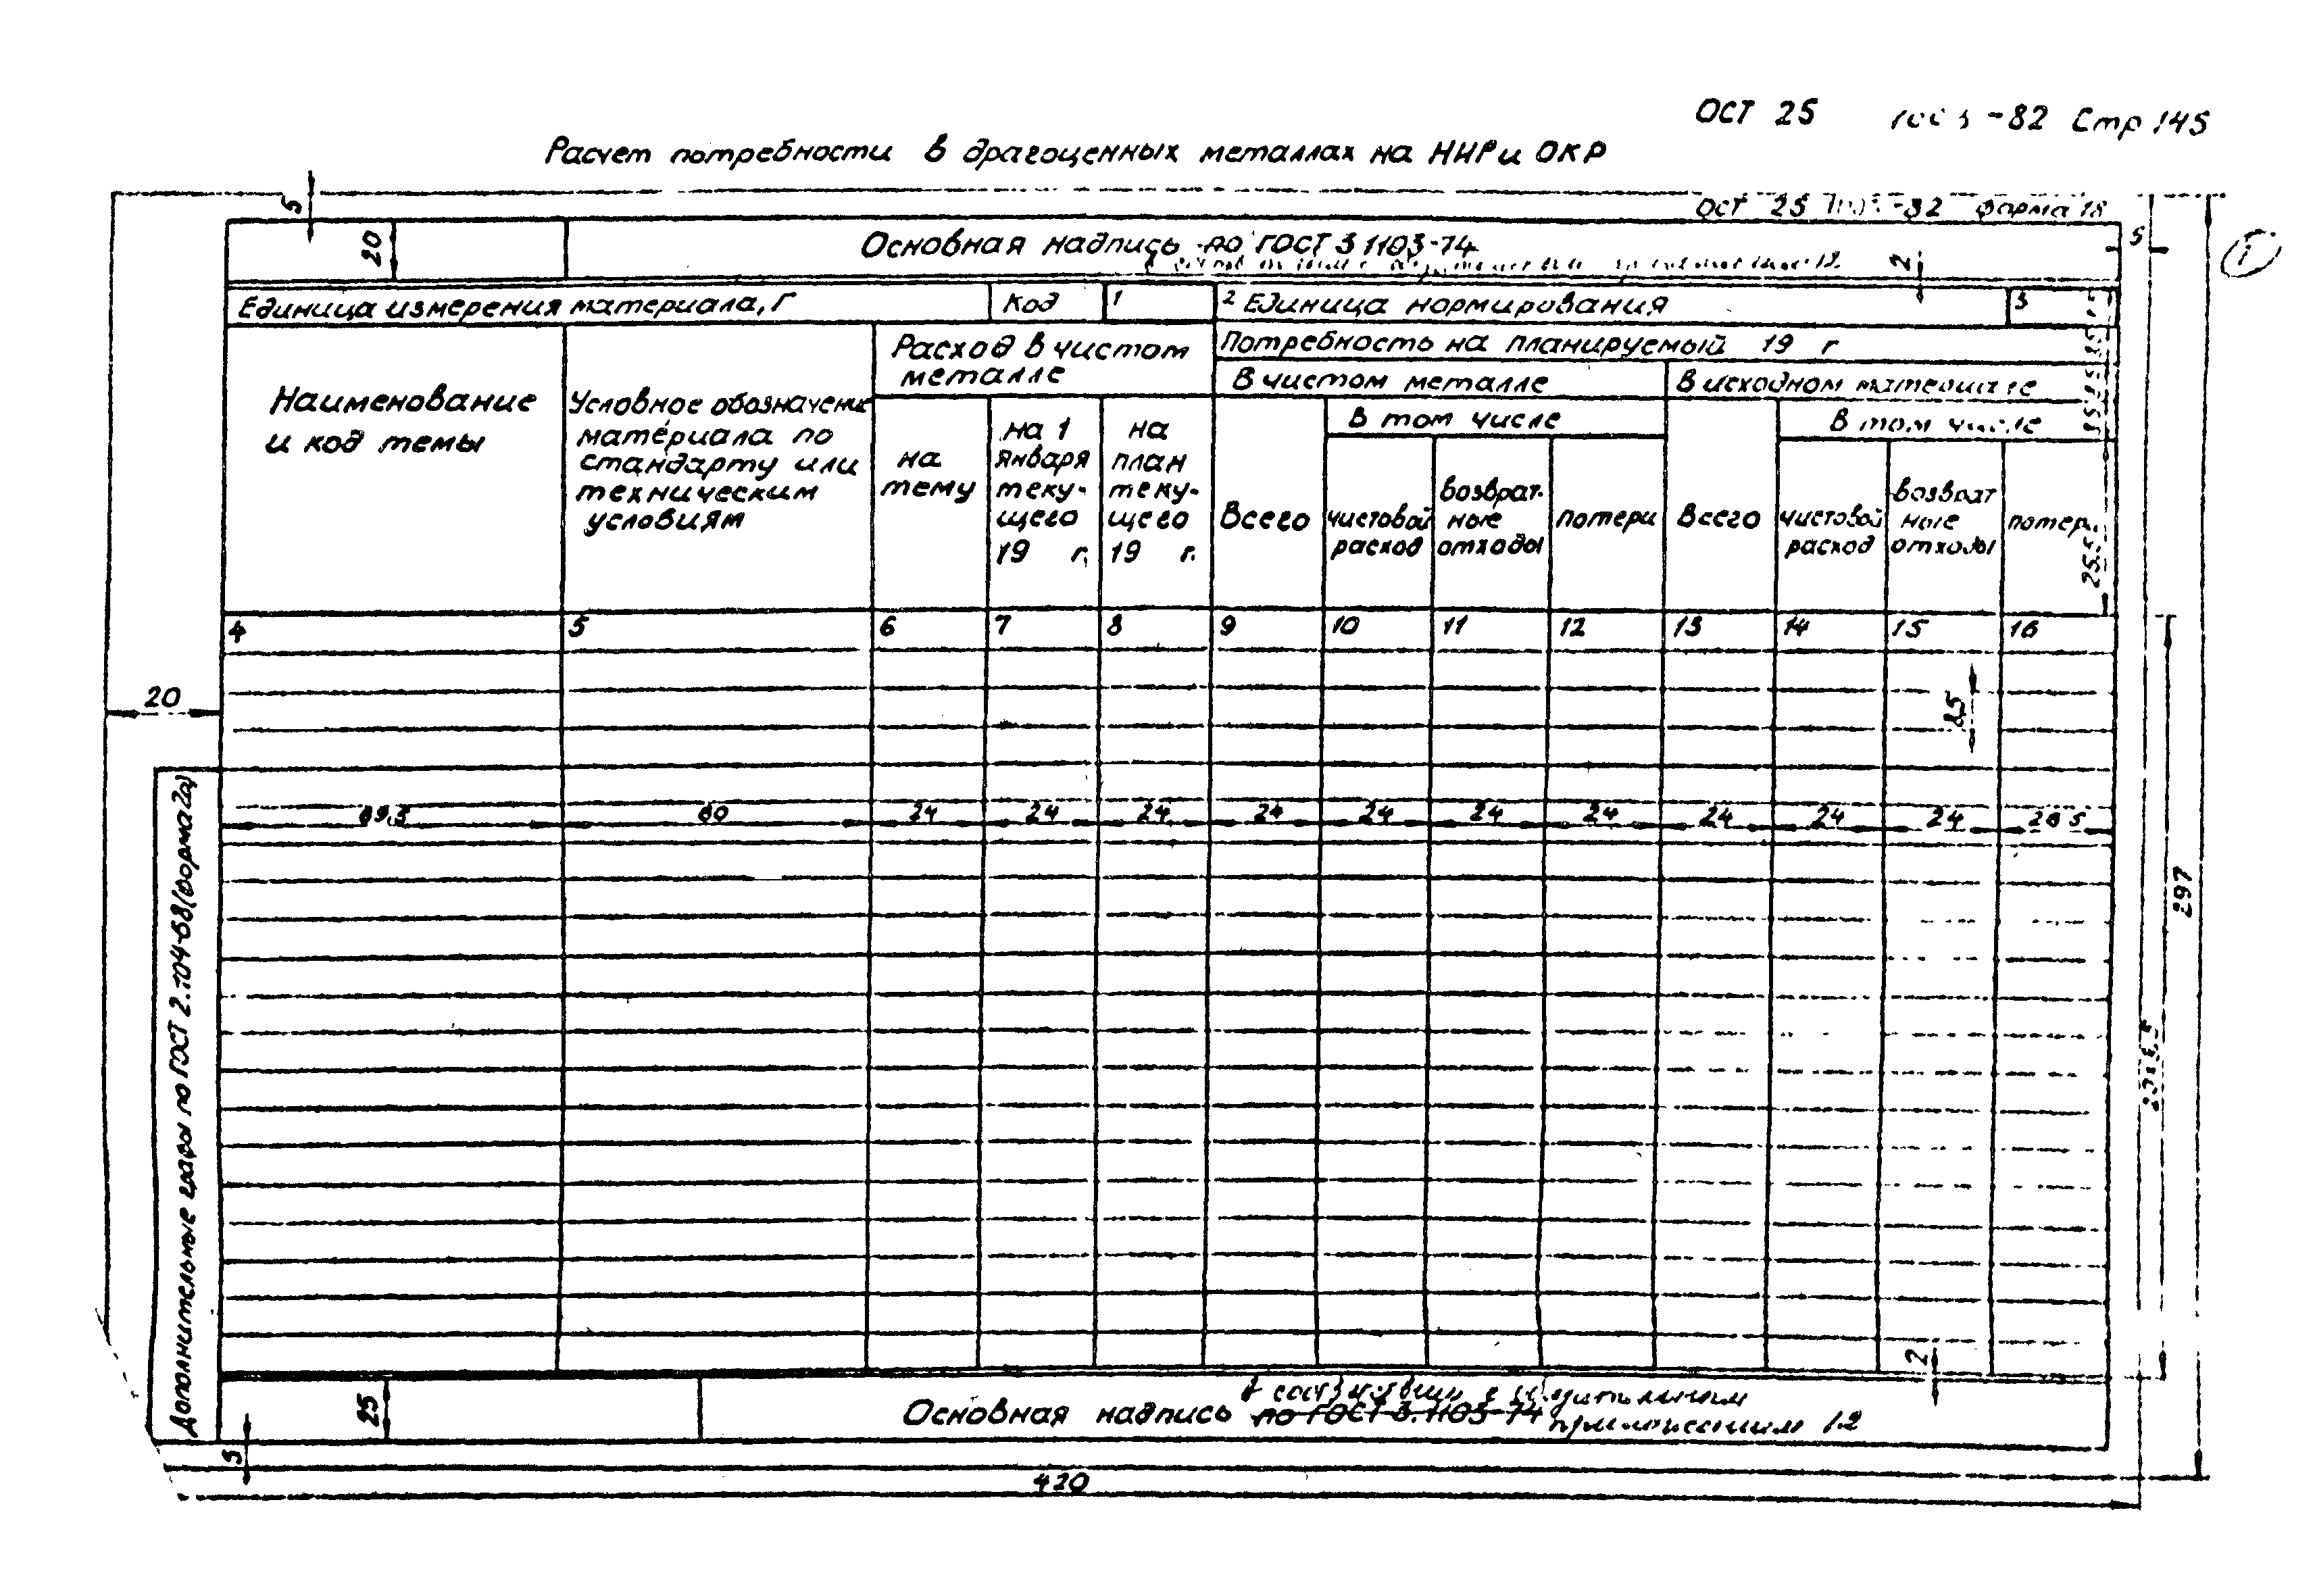 ОСТ 25 -82 Стр 145
Расчет потребности в драгоценных металлах на НИР и ОКР
ОСТ 25 -82 Форма 18
5
20
Основная надпись по ГОСТ 3 1103-74
2
5
1
Единица измерения материала, г
Код
1
2 Единица нормирования
3
Наименование
и код темы
Условное обозначение
материала по
стандарту или
техническим
условиям
Расход в чистом
металле
на
тему
на 1
января
теку-
щего
19 г.
на
план
теку-
щего
19 г.
Потребность на планируемый 19 г
В чистом металле
В исходном материале
Всего
В том числе
чистовой
расход
возврат-
ные
отходы
потери
Всего
В том числе
чистовой
расход
возврат
ные
отходы
потери
4 5 6 7 8 9 10 11 12 13 14 15 16
20
8,5
60 24 24 24 24 24 24 24 24 24 24
297
Дополнительные графы по ГОСТ 2.104-68 (форма 2а)
2
25
Основная надпись по ГОСТ 3.1103-74
в соответствии с
приложением 12
5
420